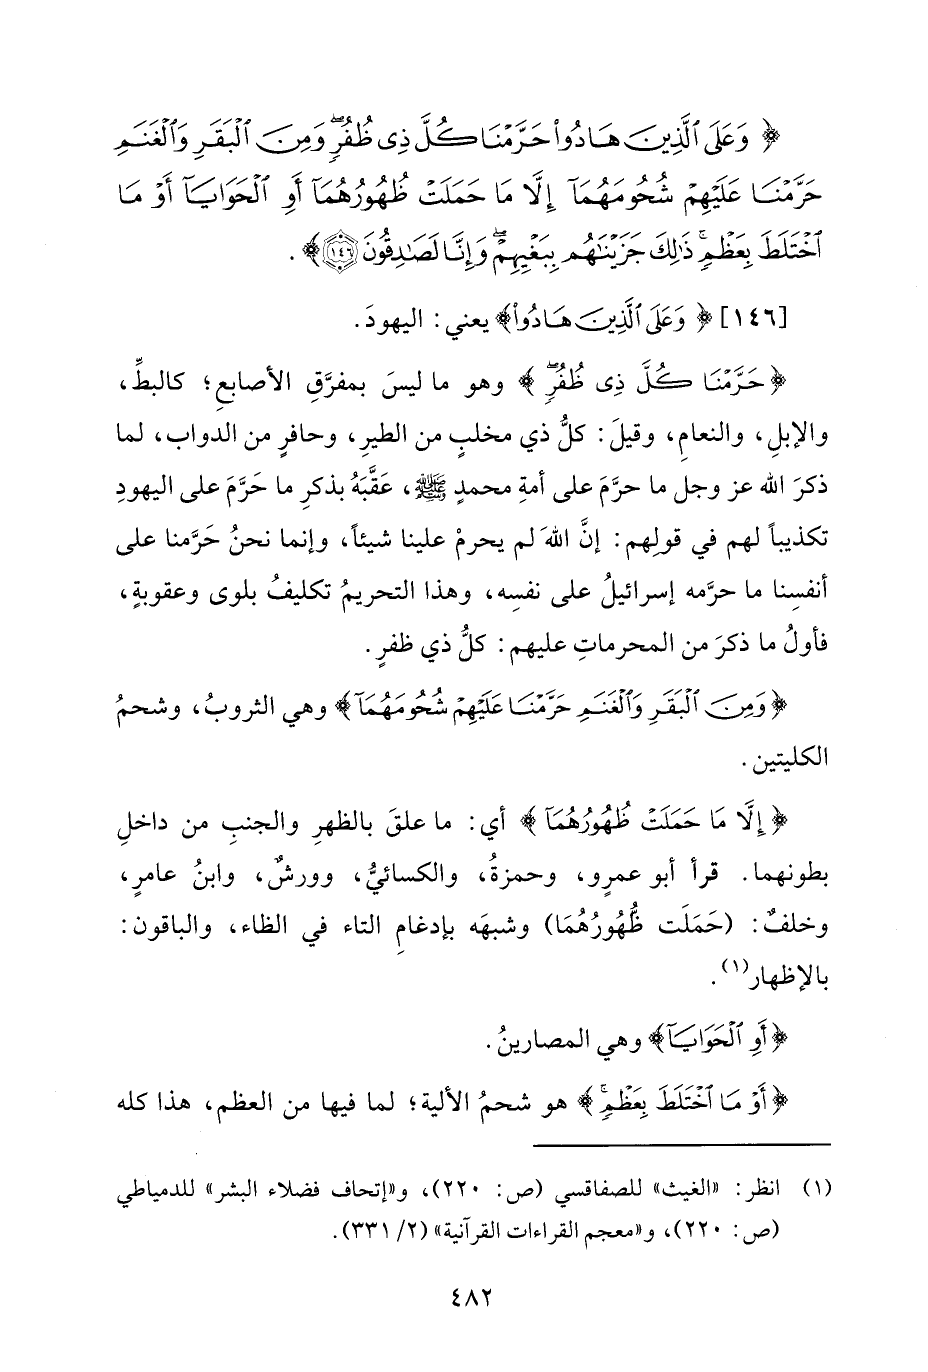 ﴿ وَعَلَى ٱلَّذِينَ هَادُواْ حَرَّمْنَا كُلَّ ذِى ظُفُرٍۖ وَمِنَ ٱلْبَقَرِ وَٱلْغَنَمِ
حَرَّمْنَا عَلَيْهِمْ شُحُومَهُمَآ إِلَّا مَا حَمَلَتْ ظُهُورُهُمَآ أَوِ ٱلْحَوَايَآ أَوْ مَا
ٱخْتَلَطَ بِعَظْمٍۚ ذَٰلِكَ جَزَيْنَٰهُم بِبَغْيِهِمْۖ وَإِنَّا لَصَٰدِقُونَ ١٤٦﴾.
[١٤٦] ﴿ وَعَلَى ٱلَّذِينَ هَادُواْ﴾ يعني: اليهودَ.
﴿حَرَّمْنَا كُلَّ ذِى ظُفُرٍۖ ﴾ وهو ما ليسَ بمفرَّقِ الأصابعِ؛ كالبطِّ،
والإبلِ، والنعامِ، وقيلَ: كلُّ ذي مخلبٍ من الطيرِ، وحافرٍ من الدواب، لما
ذكرَ الله عز وجل ما حرَّمَ على أمةِ محمدٍ ﷺ، عَقَّبَهُ بذكرِ ما حَرَّمَ على اليهودِ
تكذيباً لهم في قولِهم: إنَّ اللهَ لم يحرمْ علينا شيئاً، وإنما نحنُ حَرَّمنا على
أنفسِنا ما حرَّمه إسرائيلُ على نفسِه، وهذا التحريمُ تكليفُ بلوى وعقوبةٍ،
فأولُ ما ذكرَ من المحرماتِ عليهم: كلُّ ذي ظفرٍ.
﴿وَمِنَ ٱلْبَقَرِ وَٱلْغَنَمِ حَرَّمْنَا عَلَيْهِمْ شُحُومَهُمَآ﴾ وهي الثروبُ، وشحمُ
الكليتين.
﴿إِلَّا مَا حَمَلَتْ ظُهُورُهُمَآ ﴾ أي: ما علقَ بالظهرِ والجنبِ من داخلِ
بطونهما. قرأ أبو عمرٍو، وحمزةُ، والكسائيُّ، وورشٌ، وابنُ عامرٍ،
وخلفٌ: (حَمَلَت ظُّهُورُهُمَا) وشبهَه بإدغامِ التاء في الظاء، والباقون:
بالإظهار(١).
﴿أَوِ ٱلْحَوَايَآ﴾ وهي المصارينُ.
﴿أَوْ مَا ٱخْتَلَطَ بِعَظْمٍۚ ﴾ هو شحمُ الألية؛ لما فيها من العظم، هذا كله
(١) انظر: «الغيث» للصفاقسي (ص: ٢٢٠)، و«إتحاف فضلاء البشر» للدمياطي
(ص: ٢٢٠)، و«معجم القراءات القرآنية» (٢/ ٣٣١).
٤٨٢